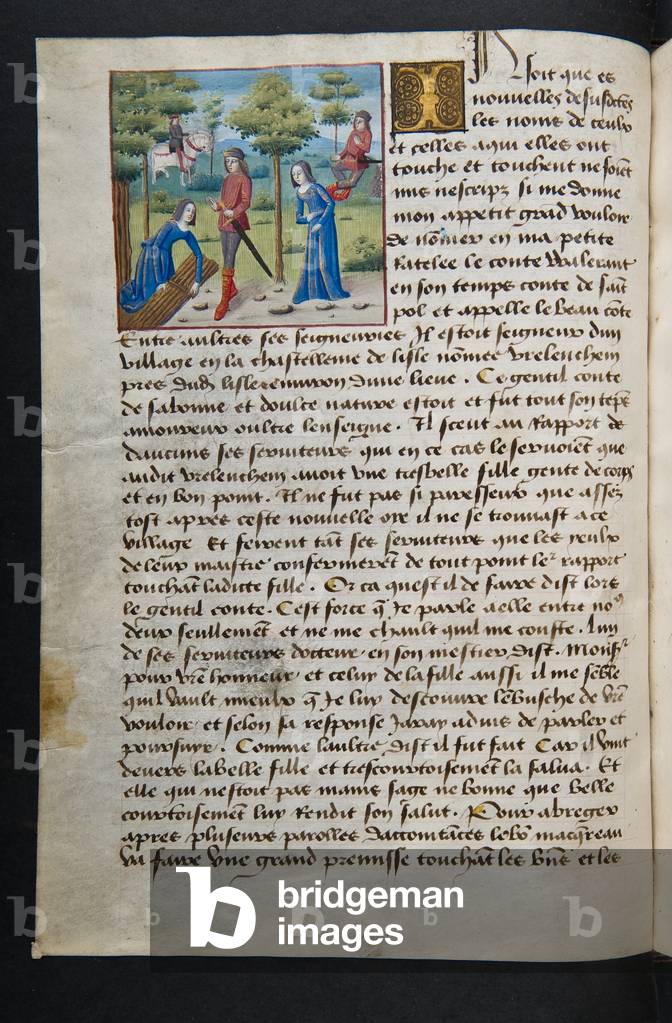 Nsoit que es
nouvelles desusdctes
les noms de ceulx
et celles aqui elles ont
touche et touchent ne soiēt
mis nescripz si me donne
mon appetit grād vouloir
de nōmer en ma petite
Ratelee le conte walerant
en son temps conte de saīt
pol et appelle le beau cōte
Entre aultres ses seigneuries Il estoit seigneur dun
village en la chastellenie de lisle nōmee vrelenchem
pres dudt lisle enuiron dune lieue . Ce gentil conte
de sa bonne et doulce nature estoit et fut tout son tēps
amoureux oultre lenseigne . Il sceut au Rapport de
daucuns ses seruiteurs qui en ce cas le seruoient que
audit vrelenchem auoit vne tresbelle fille gente de corps
et en bon point . Il ne fut pas si paresseux que assez
tost apres ceste nouuelle oye il ne se trouuast a ce
village Et feirent tāt ses seruiteurs que les yeulx
de leur maistre confermerēt de tout point ler rapport
touchant ladicte fille . Or ca quest il de faire dist lors
le gentil conte . Cest force q̄ Je parle a elle entre no9
deux seullemēt et ne me chault quil me couste . Lun
de ses seruiteurs docteur en son mestier dist . Monsr
pour vr̄e honneur et celuy de la fille aussi il me sēble
quil vault mieulx q̄ Je luy descouure lēbusche de vr̄e
vouloir et selon sa response Jaray aduis de parler et
poursuyr . Comme laultre dist il fut fait Car il vint
deuers la belle fille et trescourtoisemēt la salua . Et
elle qui nestoit pas mains sage ne bonne que belle
courtoisemēt luy Rendit son salut . Pour abreger
apres pluseurs parolles daccointāces le bō macq̄reau
va faire vne grand premisse touchāt les biēs et les
bridgeman
images